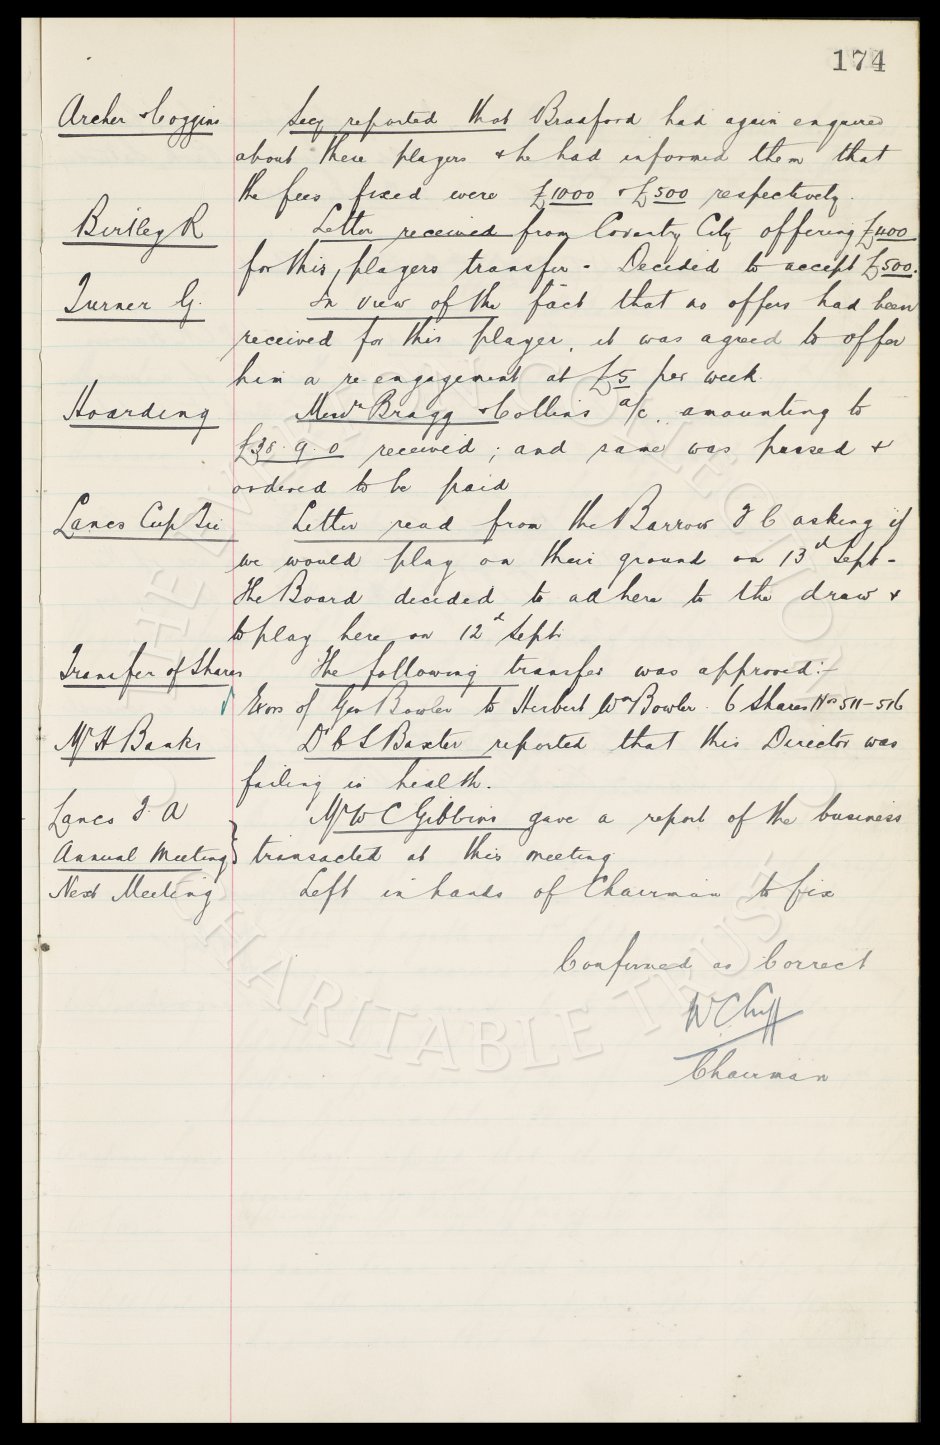 174
Archer & Coggins Secy reported that Bradford had again enquired
about these players & he had informed them that
the fees fixed were £1000 & £500 respectively.
Birtley R Letter received from Coventry City offering £400
for this players transfer - Decided to accept £500.
Turner G. In view of the fact that no offers had been
received for this player, it was agreed to offer
him a re-engagement at £5 per week.
Hoarding Messrs Bragg & Collins a/c. amounting to
£38.9.0 received; and same was passed &
ordered to be paid
Lancs Cup Tie Letter read from the Barrow F C asking if
we would play on their ground on 13th Sept -
The Board decided to adhere to the draw &
to play here on 12th Sept.
Transfer of Shares The following transfer was approved:-
Exors of Geo Bowler to Herbert Wm Bowler. 6 Shares Nos 511-516
Mr H Banks Dr C S Baxter reported that this Director was
failing in health.
Lancs F. A Mr W C Gibbins gave a report of the business
Annual Meeting transacted at this meeting
Next Meeting Left in hands of Chairman to fix
Confirmed as Correct
W C Cuff
Chairman
THE EVERTON COLLECTION
CHARITABLE TRUST